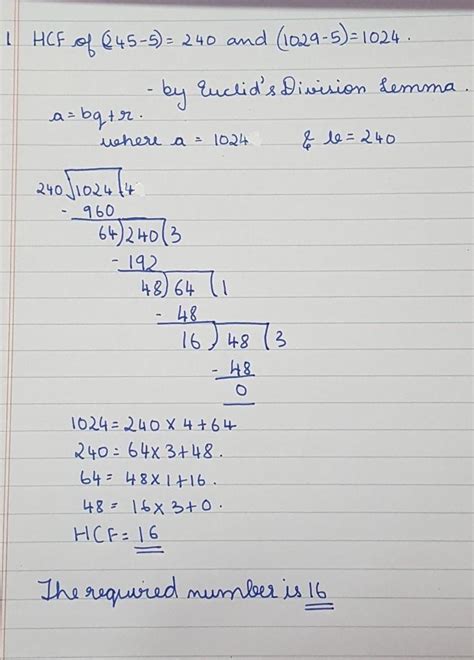 1 HCF of (245-5) = 240 and (1029-5) = 1024.
- by Euclid's Division Lemma.
a = bq + r.
where a = 1024 & b = 240
240)1024(4
- 960
64)240(3
- 192
48)64(1
- 48
16)48(3
- 48
0
1024 = 240 x 4 + 64
240 = 64 x 3 + 48.
64 = 48 x 1 + 16.
48 = 16 x 3 + 0.
HCF = 16
The required number is 16